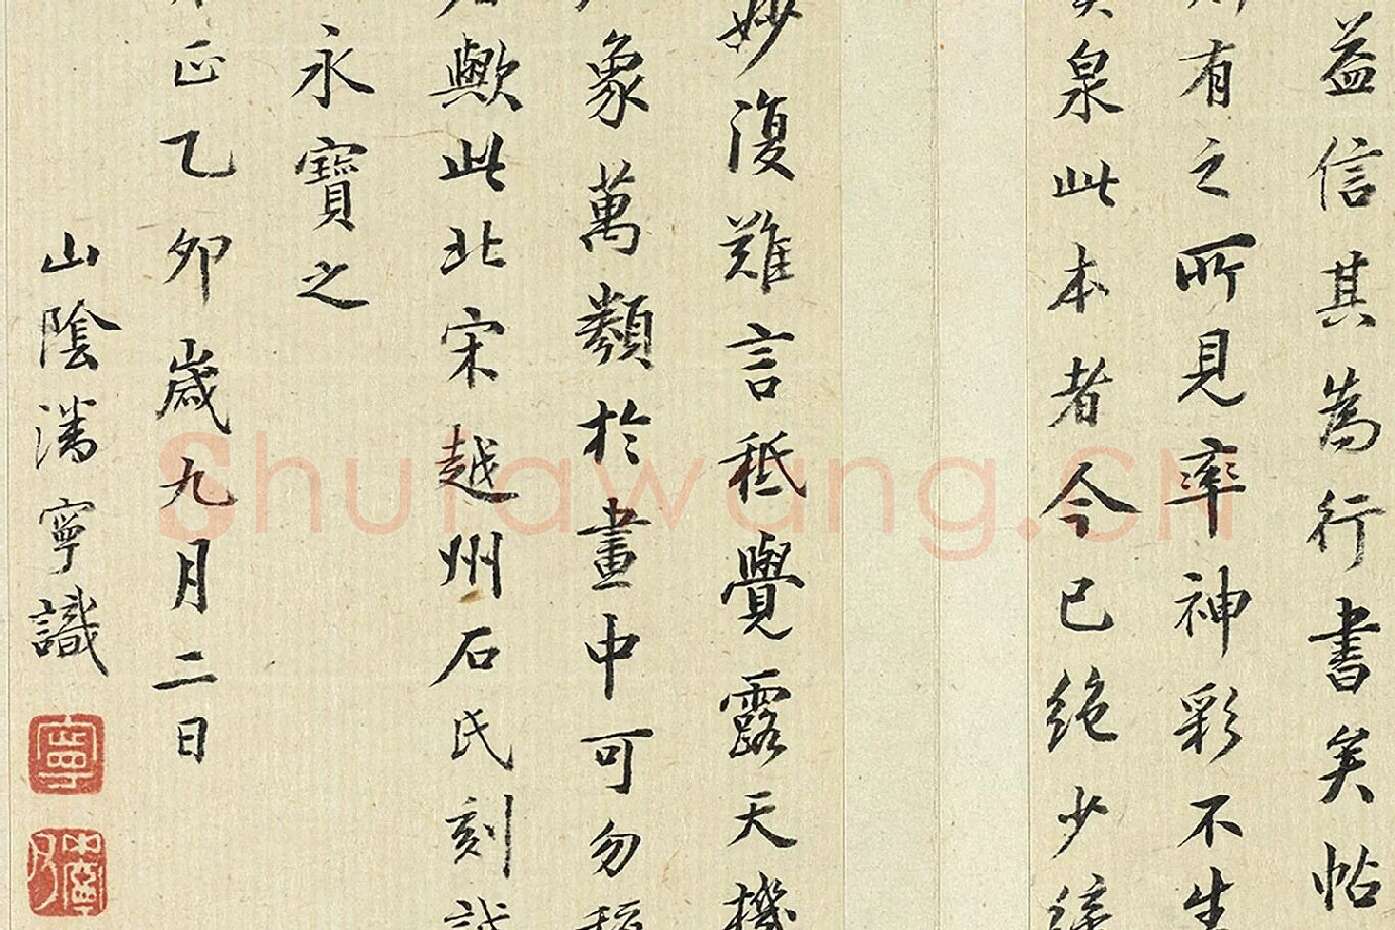 益信其為行書矣帖
有之所見率神彩不生
泉此本者今已絕少
妙復難言秖覺露天機
象萬類於畫中可勿
歟此北宋越州石氏刻誠
永寶之
正乙卯歲九月二日
山陰潘寧識
寧
Shufawang.CN